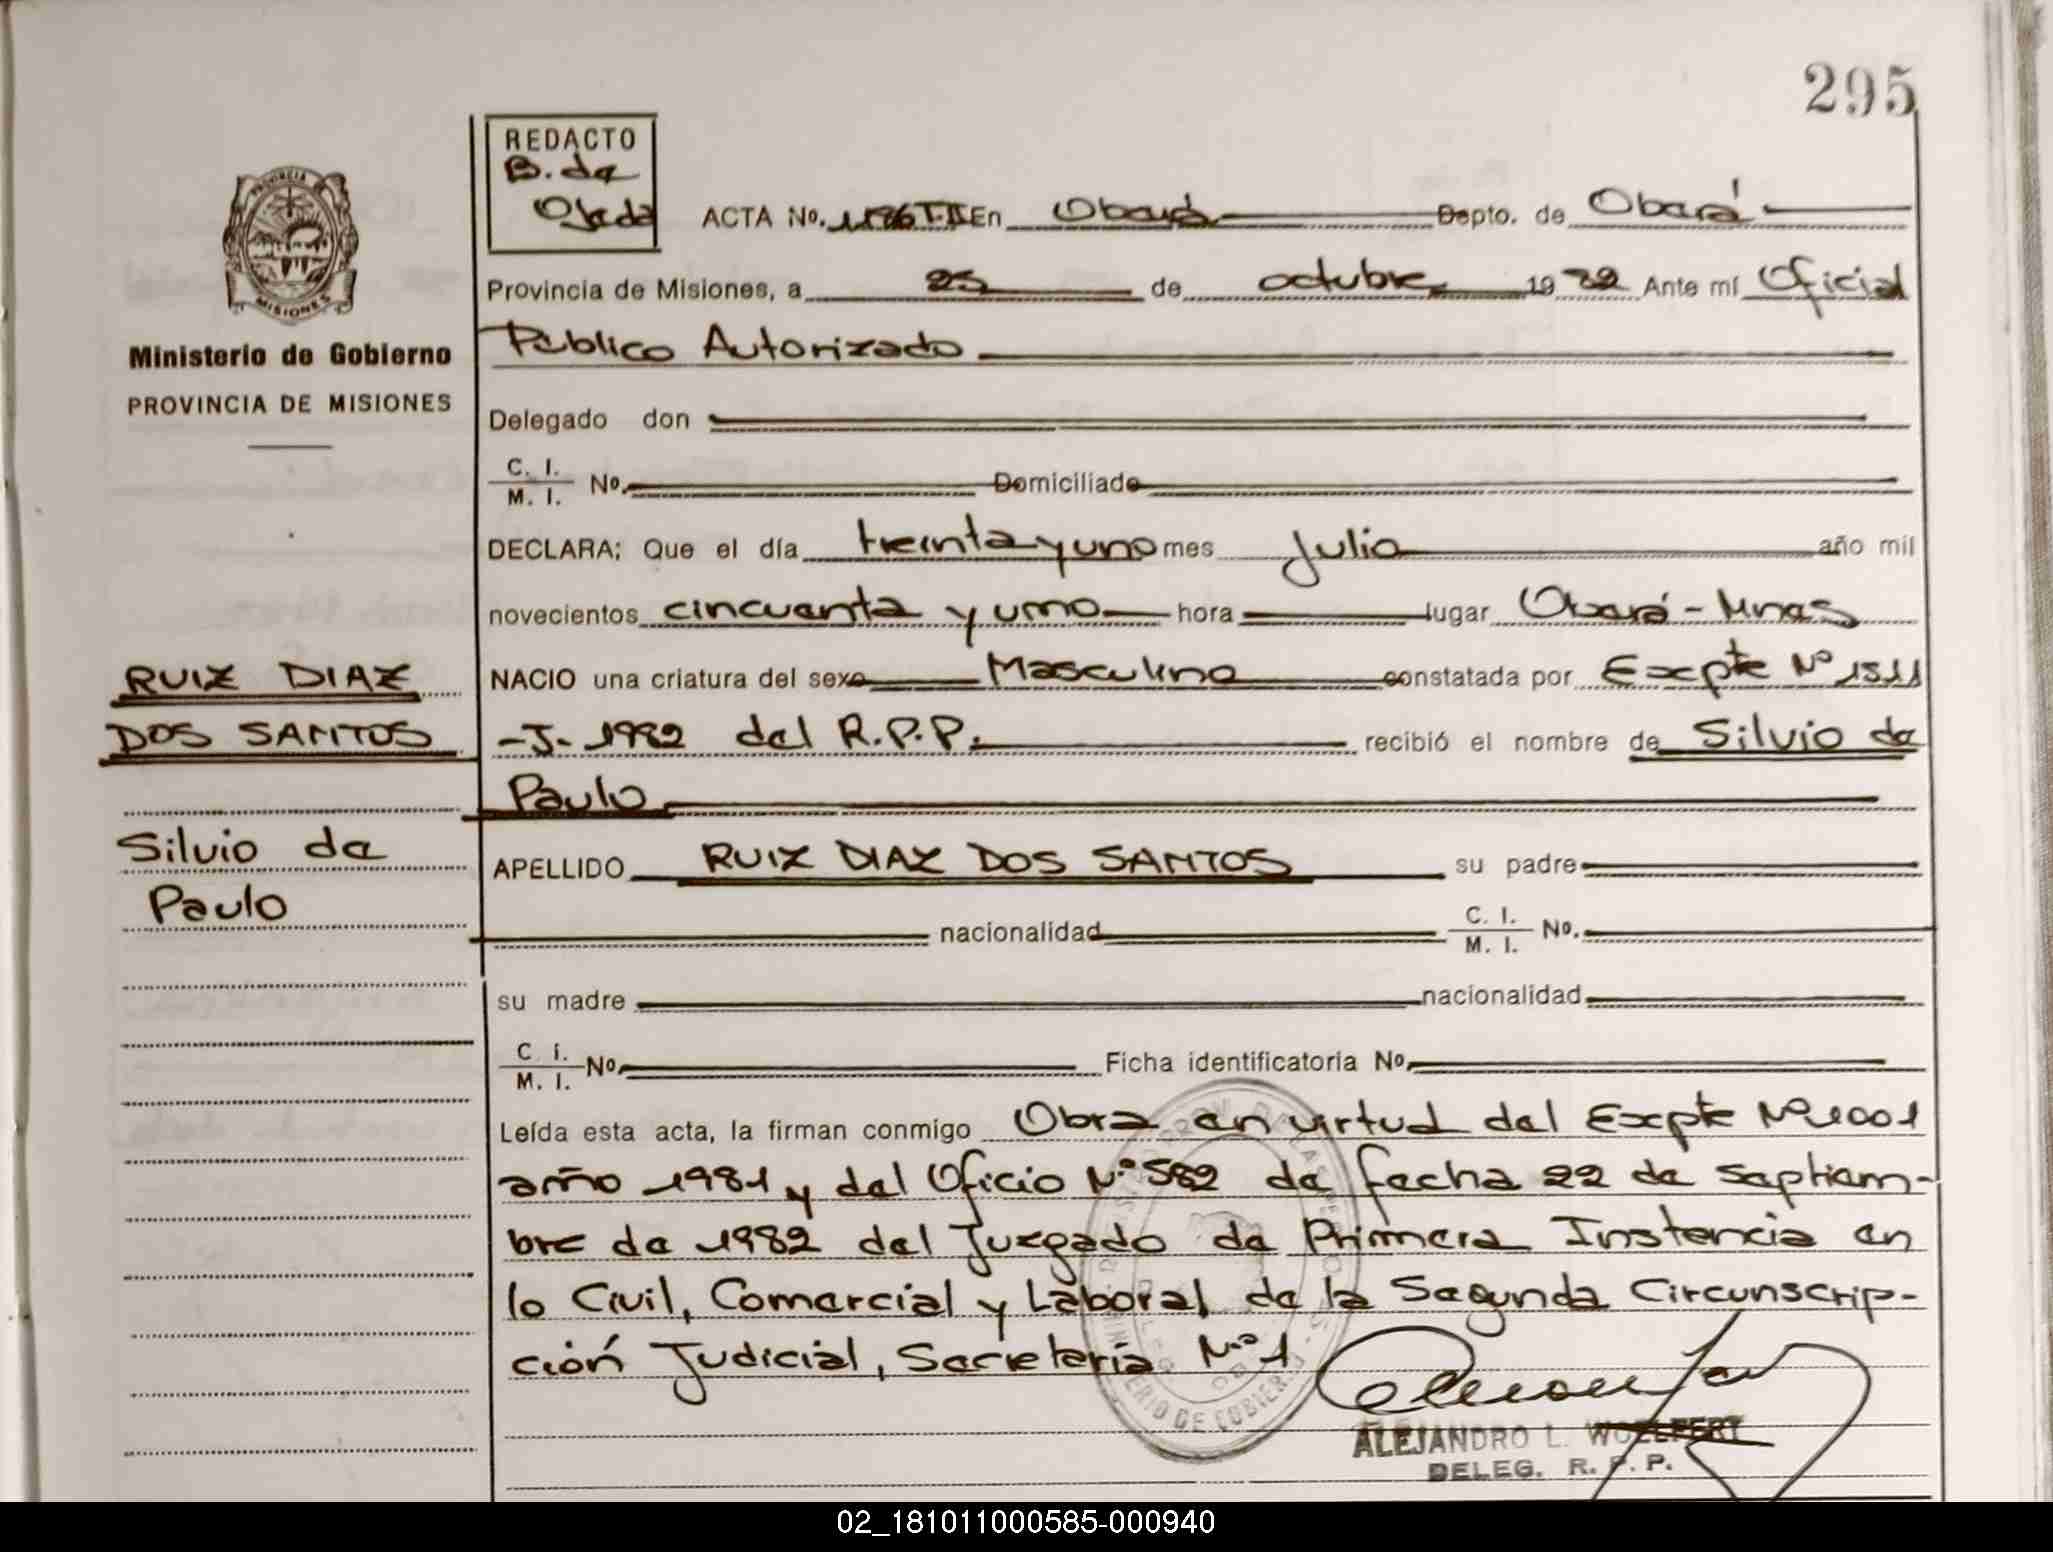 295
REDACTO
B. de
Ojeda
ACTA No. T.II En Oberá Depto. de Oberá
Provincia de Misiones, a 25 de octubre 1982 Ante mí Oficial
Público Autorizado
Delegado don
C. I.
M. I. No. Domiciliado
DECLARA; Que el día treinta y uno mes Julio año mil
novecientos cincuenta y uno hora lugar Oberá - Mnes
NACIO una criatura del sexo Masculino constatada por Expte Nº 1511
-J- 1982 del R.P.P. recibió el nombre de Silvio de
Paulo
APELLIDO RUIZ DIAZ DOS SANTOS su padre
nacionalidad C. I.
M. I. No.
su madre nacionalidad
C. I.
M. I. No Ficha identificatoria No.
Leída esta acta, la firman conmigo Obra en virtud del Expte Nº 1001
año 1981 y del Oficio N° 582 de fecha 22 de septiem-
bre de 1982 del Juzgado de Primera Instancia en
lo Civil, Comercial y Laboral de la Segunda Circunscrip-
ción Judicial, Secretaría N° 1
ALEJANDRO L. WOELFERT
DELEG. R. P. P.
PROVINCIA DE
MISIONES
Ministerio de Gobierno
PROVINCIA DE MISIONES
RUIZ DIAZ
DOS SANTOS
Silvio de
Paulo
02_181011000585-000940